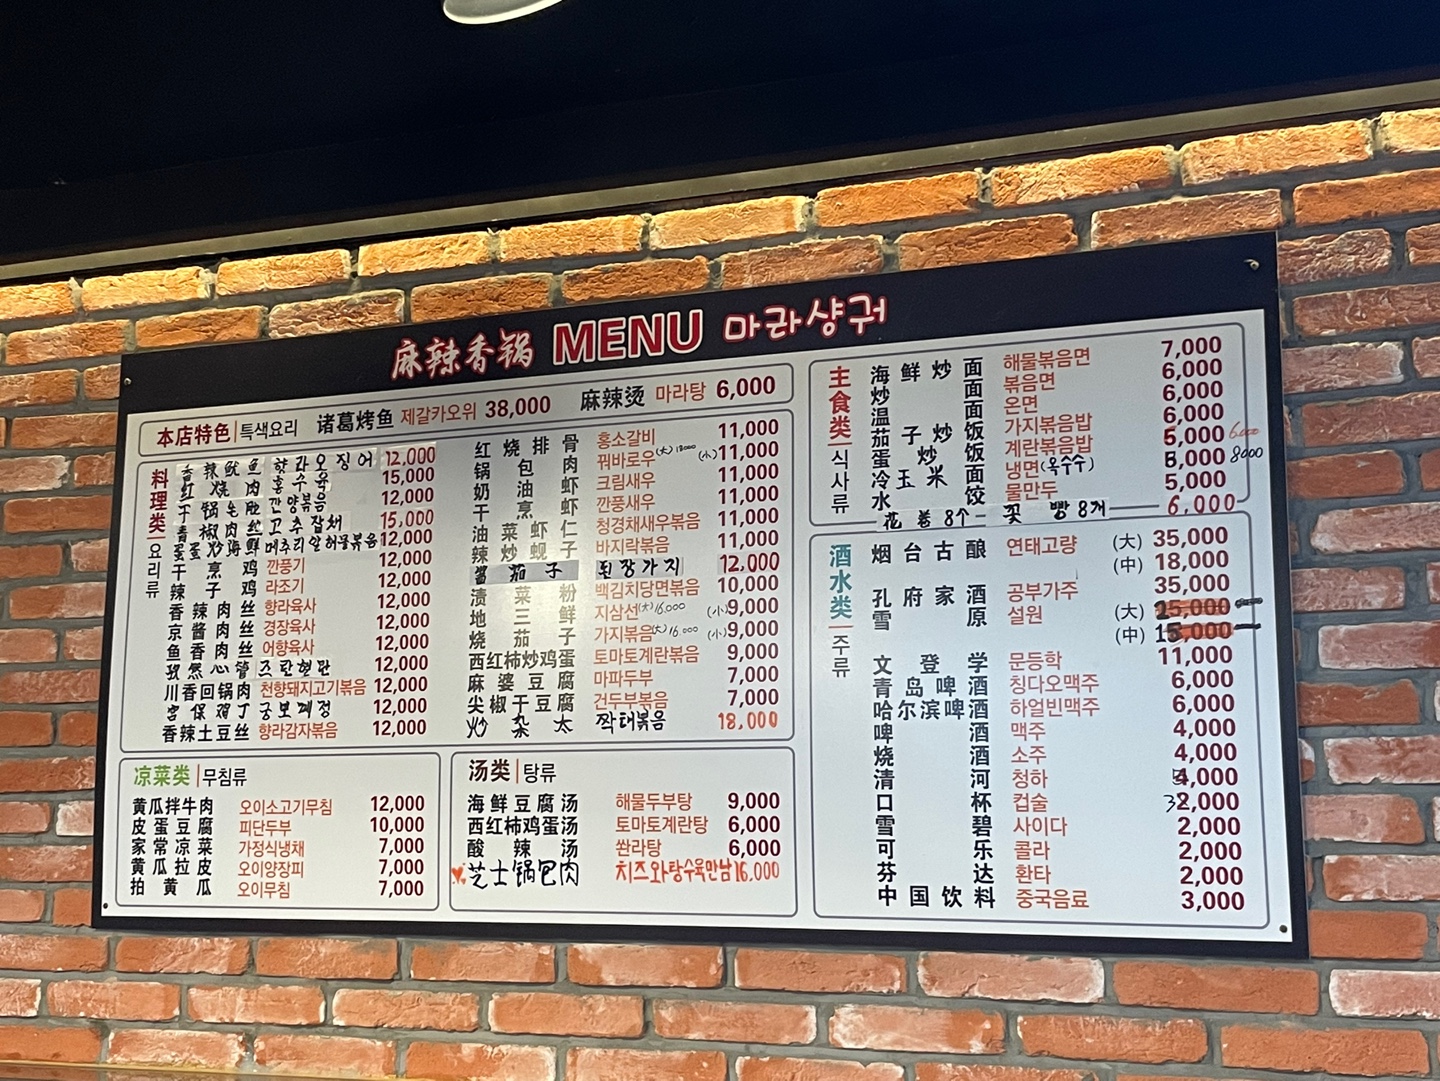 麻辣香锅 MENU 마라샹궈
本店特色 | 특색요리 诸葛烤鱼 제갈카오위 38,000 麻辣烫 마라탕 6,000
料理类 | 요리류
香辣鱿鱼 향라오징어 12,000
红烧肉 홍수육 15,000
干锅毛肚 깐양볶음 12,000
青椒肉丝 고추잡채 15,000
蛋蛋炒海鲜 메추리알해물볶음 12,000
干烹鸡 깐풍기 12,000
辣子鸡 라조기 12,000
香辣肉丝 향라육사 12,000
京酱肉丝 경장육사 12,000
鱼香肉丝 어향육사 12,000
孜然心管 즈란현관 12,000
川香回锅肉 천향돼지고기볶음 12,000
宫保鸡丁 궁보계정 12,000
香辣土豆丝 향라감자볶음 12,000
红烧排骨 홍소갈비 11,000
锅包肉 꿔바로우 (大) 18000 (小) 11,000
奶油虾 크림새우 11,000
干烹虾 깐풍새우 11,000
油菜虾仁 청경채새우볶음 11,000
辣炒蚬子 바지락볶음 11,000
酱茄子 된장가지 12,000
渍菜粉 백김치당면볶음 10,000
地三鲜 지삼선 (大) 16.000 (小) 9,000
烧茄子 가지볶음 (大) 16.000 (小) 9,000
西红柿炒鸡蛋 토마토계란볶음 9,000
麻婆豆腐 마파두부 7,000
尖椒干豆腐 건두부볶음 7,000
炒杂太 짝태볶음 18,000
凉菜类 | 무침류
黄瓜拌牛肉 오이소고기무침 12,000
皮蛋豆腐 피단두부 10,000
家常凉菜 가정식냉채 7,000
黄瓜拉皮 오이양장피 7,000
拍黄瓜 오이무침 7,000
汤类 | 탕류
海鲜豆腐汤 해물두부탕 9,000
西红柿鸡蛋汤 토마토계란탕 6,000
酸辣汤 쏸라탕 6,000
芝士锅包肉 치즈와탕수육만남 16,000
主食类 | 식사류
海鲜炒面 해물볶음면 7,000
炒面 볶음면 6,000
温面 온면 6,000
茄子炒饭 가지볶음밥 6,000
蛋炒饭 계란볶음밥 5,000 6000
冷玉米面 냉면(옥수수) 5,000 8000
水饺 물만두 5,000
花卷8个 꽃빵8개 6,000
酒水类 | 주류
烟台古酿 연태고량 (大) 35,000
(中) 18,000
孔府家酒 공부가주 35,000
雪原 설원 (大) 25,000
(中) 15,000
文登学 문등학 11,000
青岛啤酒 칭다오맥주 6,000
哈尔滨啤酒 하얼빈맥주 6,000
啤酒 맥주 4,000
烧酒 소주 4,000
清河 청하 4,000
口杯 컵술 2,000
雪碧 사이다 2,000
可乐 콜라 2,000
芬达 환타 2,000
中国饮料 중국음료 3,000